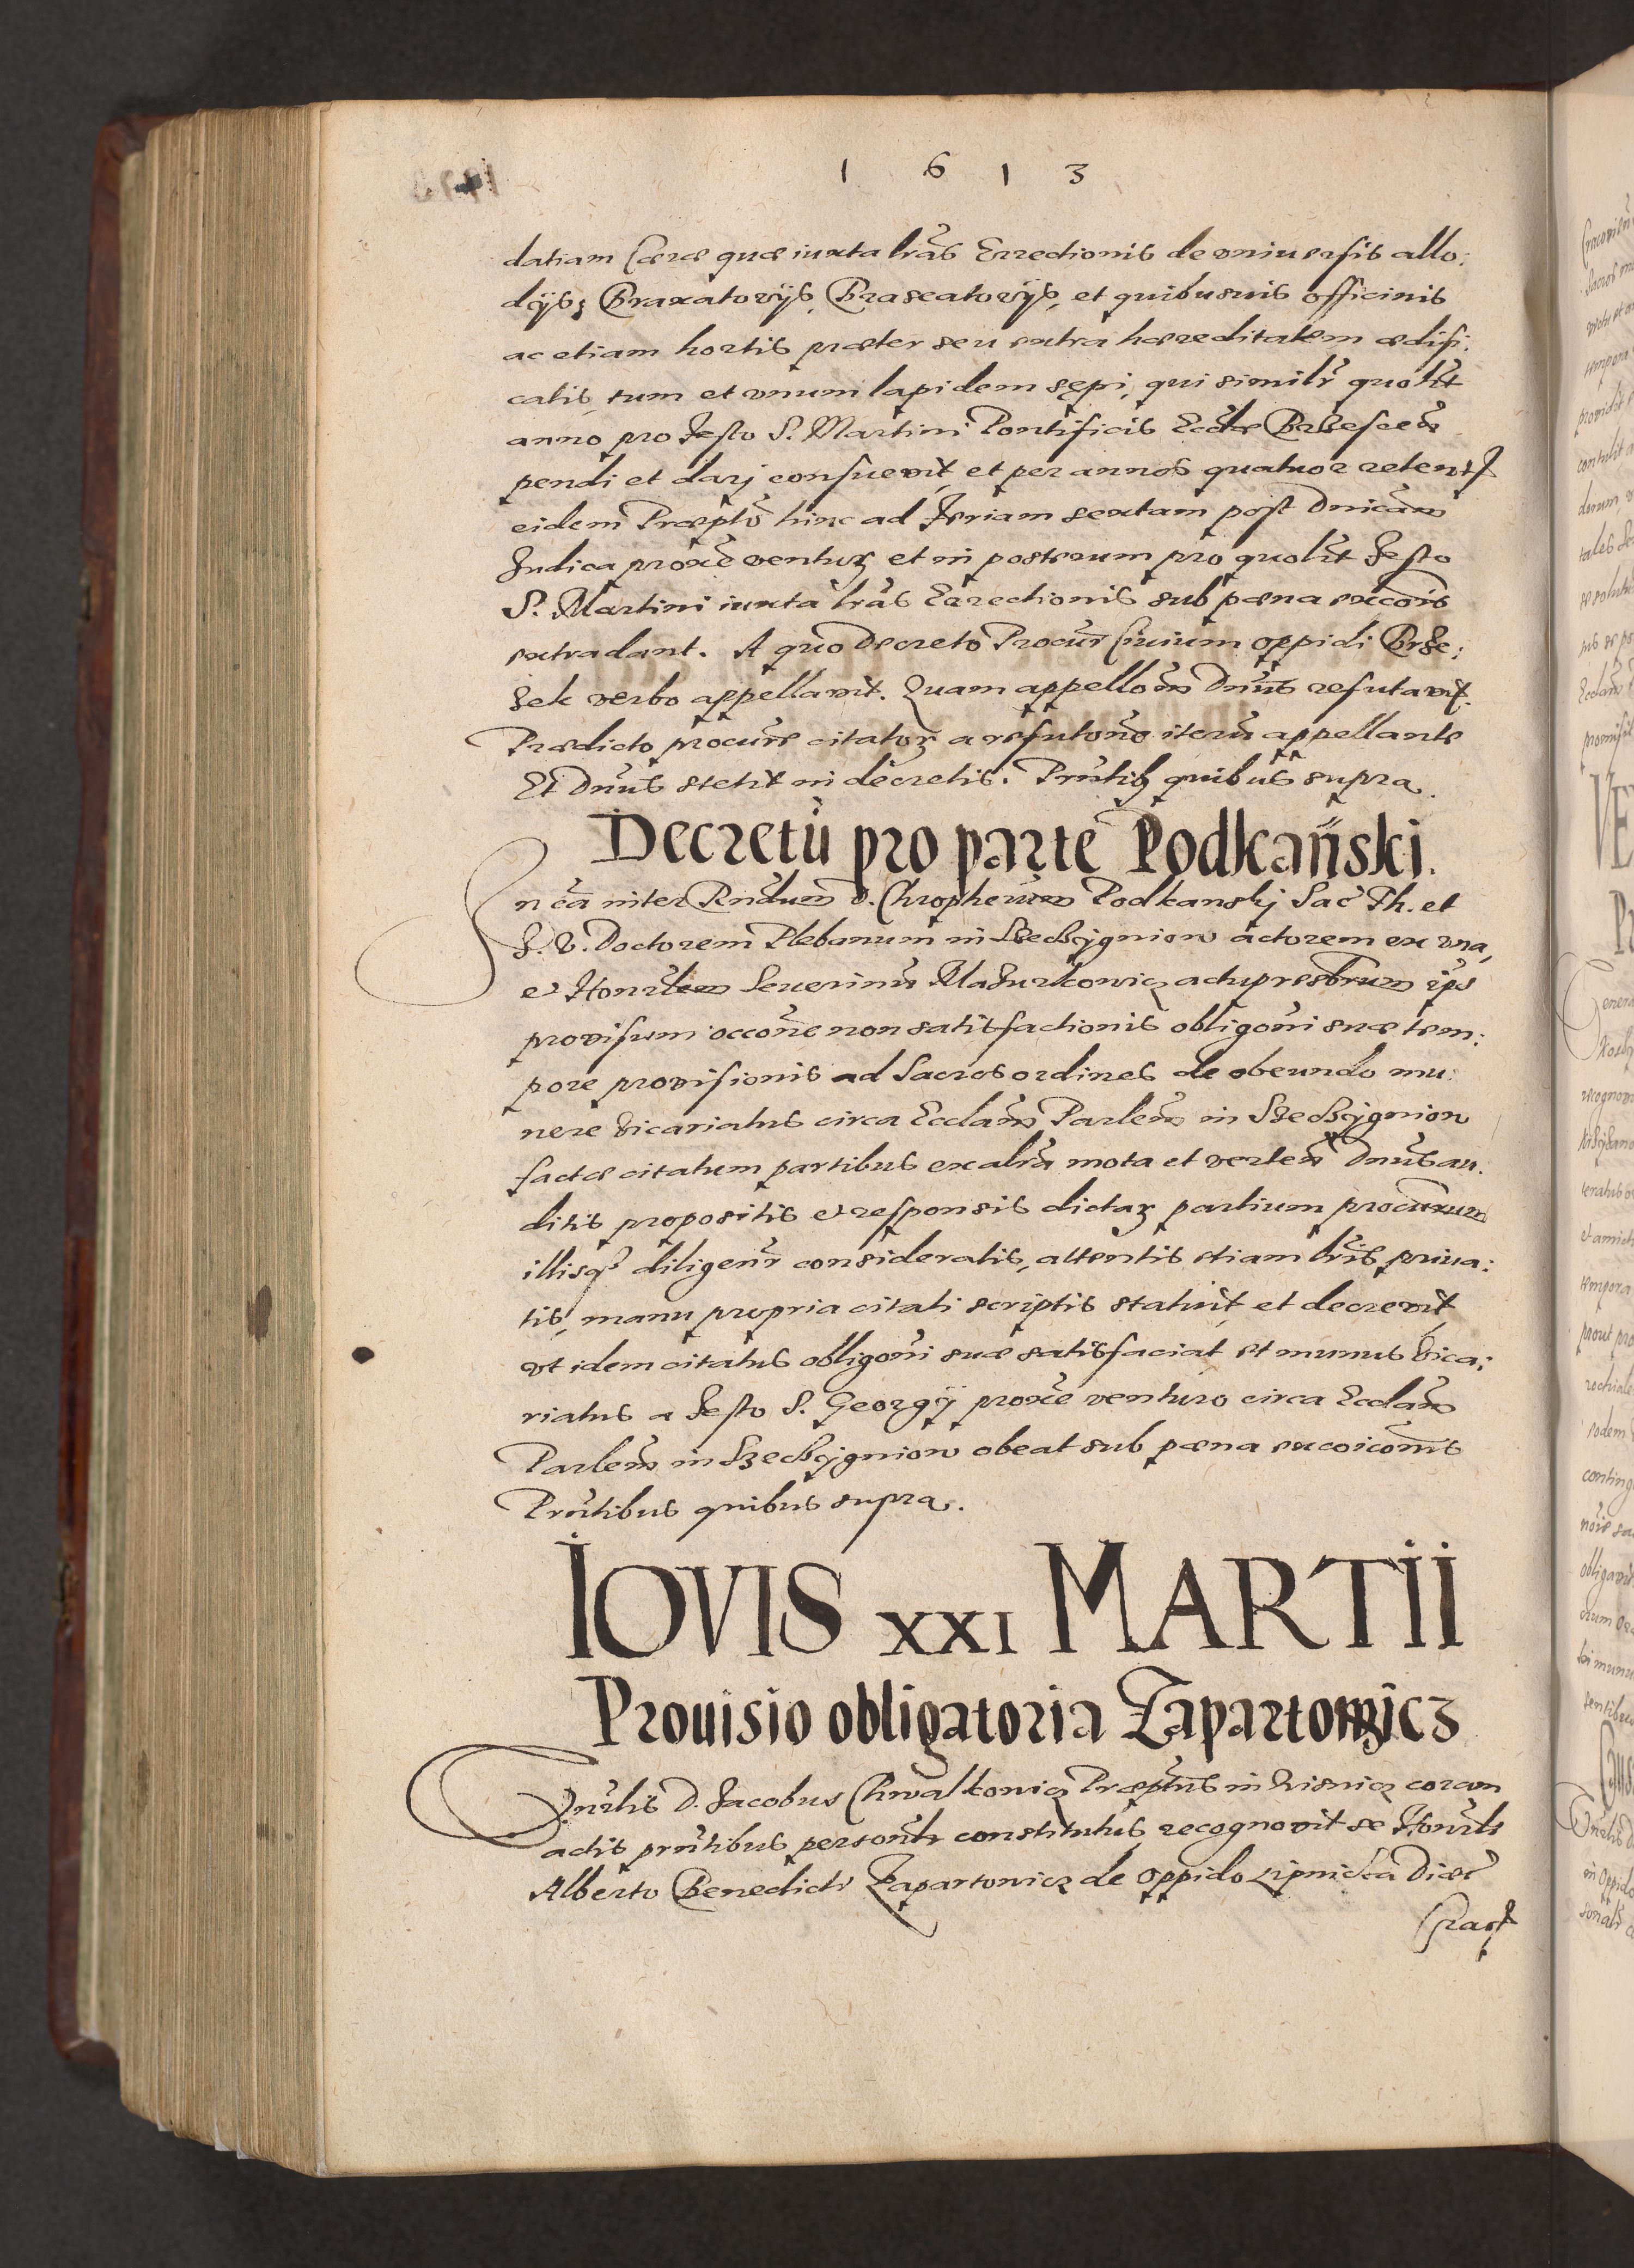 1 6 1 3
datiam Ceræ quæ iuxta lras Errectionis de vniuersis allo:
dijs, Braxatorijs, Braseatorijs, et quibusuis officinis
ac etiam hortis præter seu extra hæreditatem ædifi:
catis, tum et vnum lapidem sępi, qui similr quolt
anno pro festo S. Martini Pontificis Eccle
pendi et darj consuevit, et per annos quatuor retent
eidem Præpto hinc ad feriam sextam post Dnicam
Iudica proxe ventur et in posterum pro quolt festo
S. Martini iuxta lras Errectionis sub pæna exccois
extradant. A quo Decreto Procur Ciuium oppidi Brze:
sek verbo appellavit. Quam appellom Dnus refutavit.
Prædicto procure citator a refutone iteru appellante
Et Dnus stetit in decretis. Pntib quibus supra.
Decretũ pro parte Podkański.
In ca inter Rndum D. Chropherum Podkanskj Sac Th. et
I. V. Doctorem Plebanum in Szczyrzygnion actorem ex vna,
et Honrlem Seuerinu Mazurkowicz actu presbrum ips
provisum occone non satisfactionis obligoni suæ tem:
pore provisionis ad Sacros ordines de obeundo mu:
nere Vicariatus circa Ecclam Parlem in
factæ citatum partibus ex altra mota et verten Dnus au:
ditis propositis et responsis dictar partium procurum
illisq diligenr consideratis, attentis etiam lris priua:
tis, manu propria citati scriptis statuit, et decrevit
vt idem citatus obligoni suæ satisfaciat et munus Vica:
riatus a festo S. Georgij proxe venturo circa Ecclam
Parlem in obeat sub pæna excoicomis
Pntibus quibus supra.
IOVIS XXI MARTII
Prouisio obligatoria Zapartowicz
Honrlis D. Jacobus Chwalkowicz Præptus in Wisnicz coram
actis pntibus personlr constitutus, recognovit se Honrli
Alberto Benedicti Zapartowicz de oppido Lipnicka Diæc
Crac